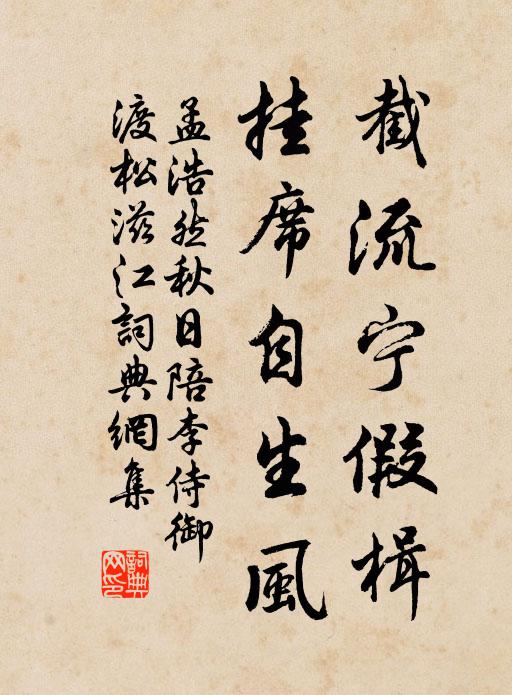 截流宁假楫
挂席自生風
孟浩然秋日陪李侍御
渡松滋江詞典網集
詞典
网印